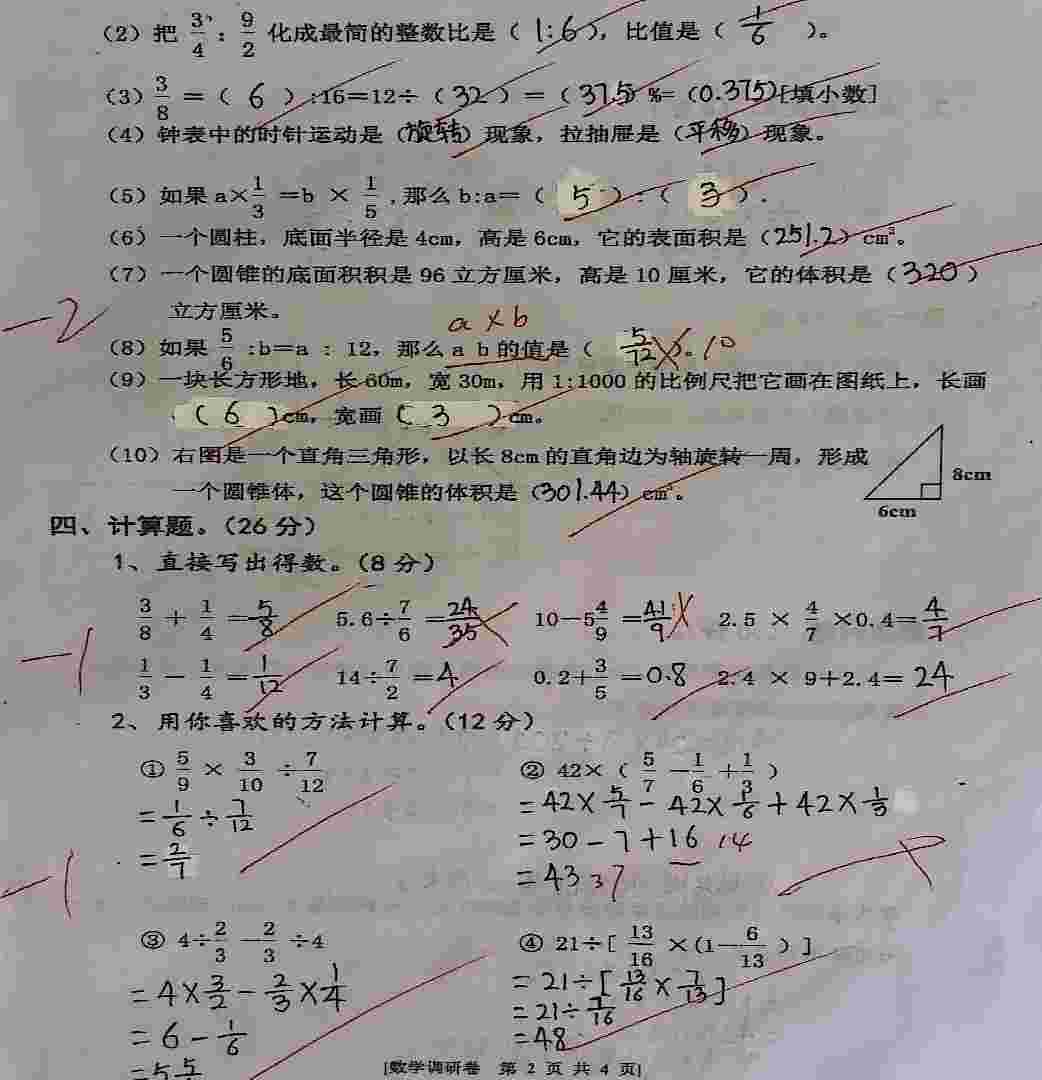 (2) 把 3/4 : 9/2 化成最简的整数比是 ( 1:6 ), 比值是 ( 1/6 )。
(3) 3/8 = ( 6 ) :16=12÷ ( 32 ) = ( 37.5 ) %= (0.375)[填小数]
(4) 钟表中的时针运动是 (旋转) 现象, 拉抽屉是 (平移) 现象。
(5) 如果 a×1/3 =b × 1/5 ,那么 b:a= ( 5 ) : ( 3 ) .
(6) 一个圆柱, 底面半径是 4cm, 高是 6cm, 它的表面积是 (251.2) cm²。
(7) 一个圆锥的底面积积是 96 立方厘米, 高是 10 厘米, 它的体积是 (320)
-2
立方厘米。
a×b
(8) 如果 5/6 :b=a : 12, 那么 a b 的值是 ( 5/12 )。10
(9) 一块长方形地, 长 60m, 宽 30m, 用 1:1000 的比例尺把它画在图纸上, 长画
( 6 )cm, 宽画 ( 3 )cm。
(10) 右图是一个直角三角形, 以长 8cm 的直角边为轴旋转一周, 形成
一个圆锥体, 这个圆锥的体积是 (301.44) cm³。
8cm
6cm
四、计算题。(26 分)
1、直接写出得数。(8 分)
3/8 + 1/4 =5/8 5.6÷7/6 =24/35 10-5 4/9 =41/9 2.5 × 4/7 ×0.4=4/7
-1
1/3 - 1/4 =1/12 14÷7/2 =4 0.2+3/5 =0.8 2.4 × 9+2.4= 24
2、用你喜欢的方法计算。(12 分)
① 5/9 × 3/10 ÷ 7/12 ② 42× ( 5/7 - 1/6 + 1/3 )
= 1/6 ÷ 7/12 = 42× 5/7 - 42× 1/6 + 42× 1/3
= 2/7 = 30 - 7 + 16 14
= 43 37
-1
③ 4÷2/3 - 2/3 ÷4 ④ 21÷[ 13/16 ×(1-6/13 ) ]
= 4× 3/2 - 2/3 × 1/4 = 21÷[ 13/16 × 7/13 ]
= 6 - 1/6 = 21÷ 7/16
= 5 5/ = 48
[数学调研卷 第 2 页 共 4 页]